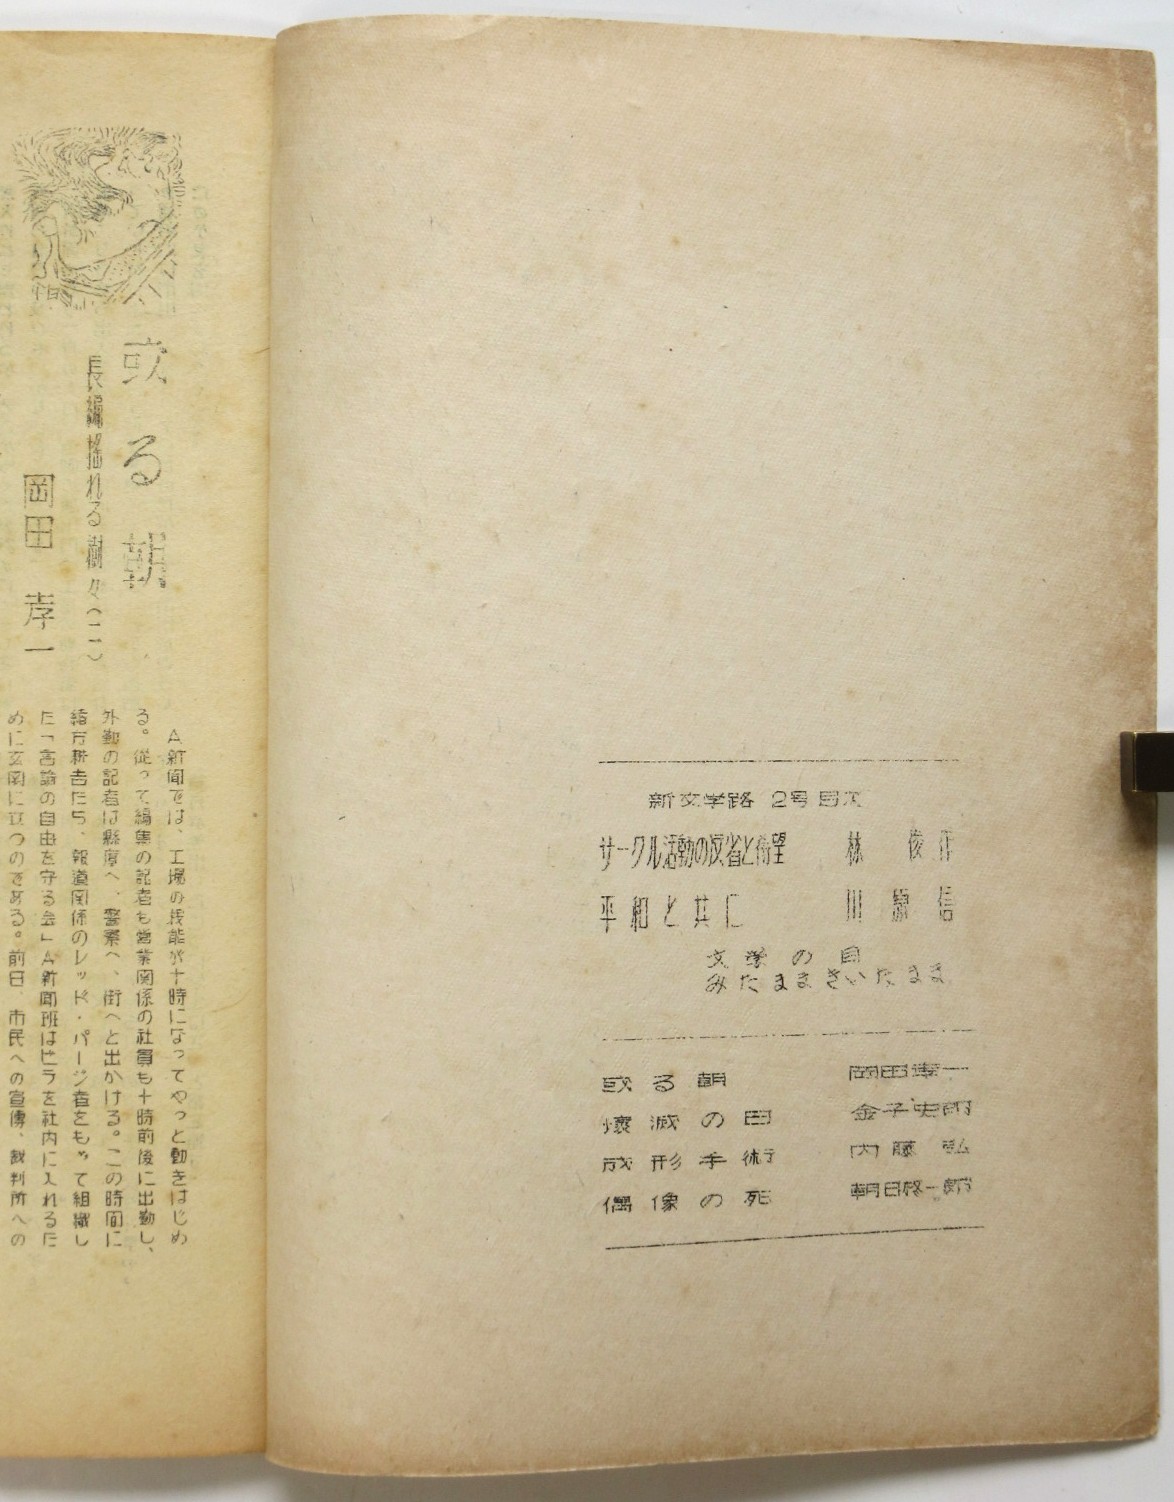 新文学路 2号目次
サークル活動の反省と希望 林 俊作
平和と共に 川原 信
文学の目
みたままきいたまま
或る朝 岡田孝一
壊滅の田 金子史郎
成形手術 内藤 弘
偶像の死 朝日啓一郎
或る朝
長編揺れる樹々(二)
岡田 孝一
A新聞では、工場の機能が十時になってやっと動きはじめ
る。従って編集の記者も営業関係の社員も十時前後に出勤し、
外勤の記者は縣廰へ、警察へ、街へと出かける。この時間に
緒方耕吉たち、報道関係のレッド・パージ者をもって組織し
た「言論の自由を守る会」A新聞班はビラを社内に入れるた
めに玄関に立つのである。前日、市民への宣傳、裁判所への